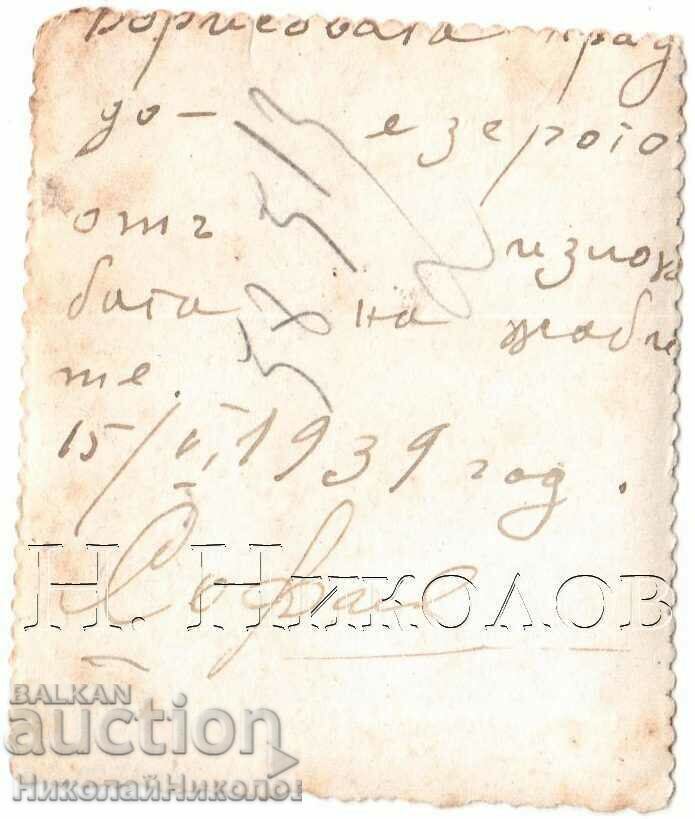 Борисовата град
до - езерото
отъ изложб
бата на жабы
те.
15/VI, 1939 год.
София
Н. Николов
BALKAN
auction
НиколайНиколов